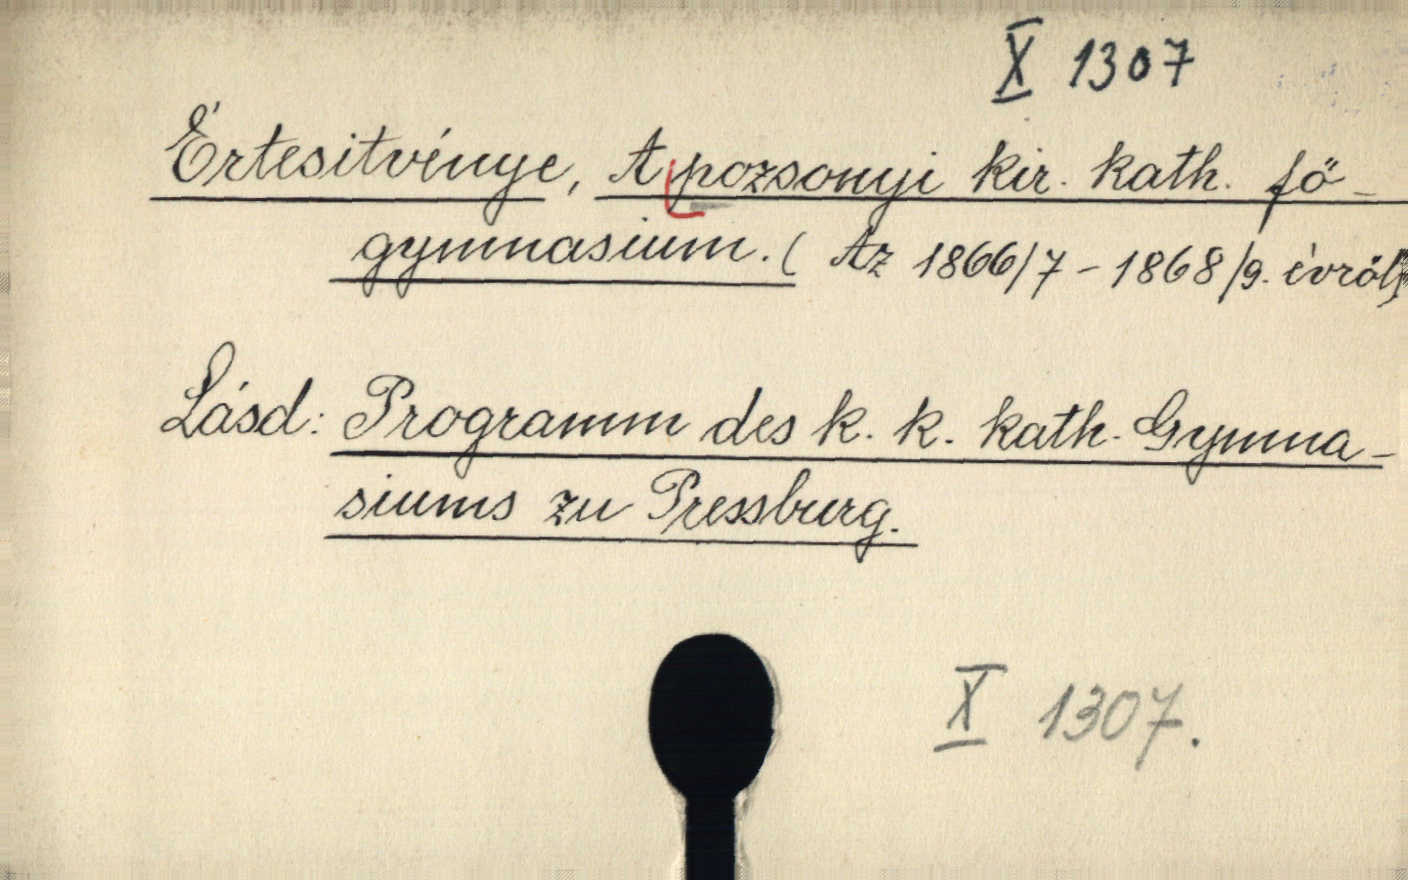 X 1307
Értesitvénye, A pozsonyi kir. kath. fő-
gymnasium. (Az 1866/7 - 1868/9. évről)
Lásd: Programm des k. k. kath. Gymna-
siums zu Pressburg.
X 1307.